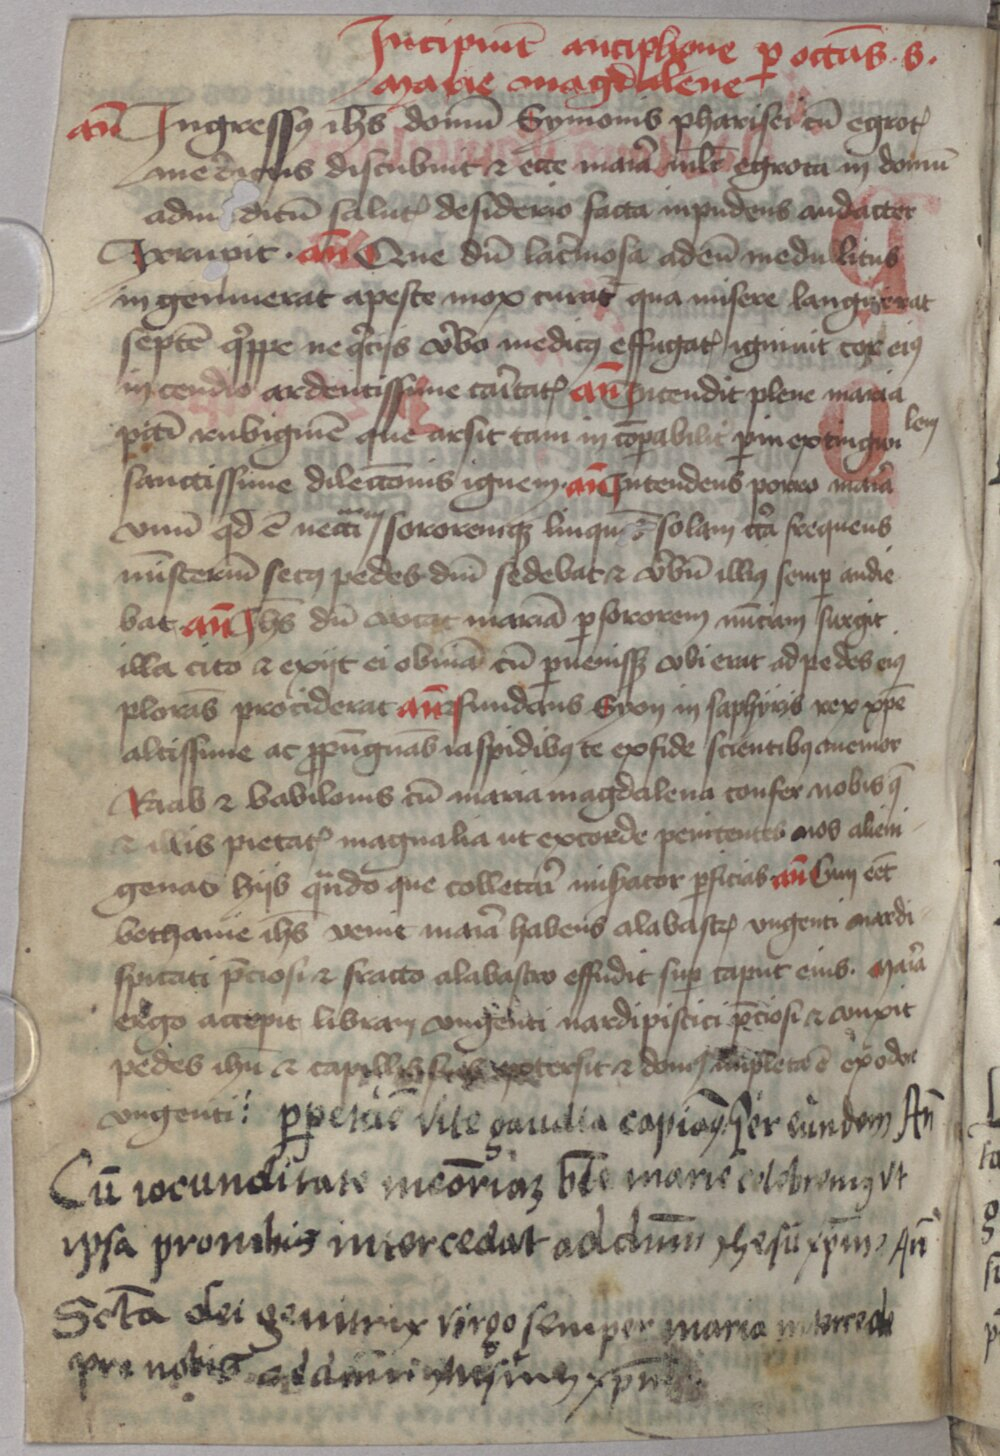 Incipiūt antiphone ꝑ octāˢ. s.
marie magdalene
an̄ Ingressꝰ ih̄s domū Symonis pharisei cū egrotꝭ
discubuit ⁊ ecce mar̄ia ml̄r egrota in domū
salutꝭ desiderio facta inpudens audacter
Irrupit . an̄ Que dū lacr̄mosa ad eū medullitus
ingemuerat a peste mox curat̄ qua misere languerat
septē q̇ppe neq̇cijs v̄bo medicꝰ effugatꝭ igniuit cor eiꝰ
incendio ardentissime car̄itatꝭ an̄ Incendit plene maria
pct̄i rubiginē que arsit tam incōꝑabilit̄ ꝑ inextinguilem
sanctissime dilectōnis ignem. an̄ Intendens porro mar̄ia
vnū qd̄ ē necc̄ariū sororemqꝫ linquēs solam cc̄a frequens
mīsteriū secꝰ pedes dn̄i sedebat ⁊ v̄bū illiꝰ semꝑ audie
bat an̄ Ih̄s dū vocat mariā ꝑ sororem nūciam surgit
illa cito ⁊ exijt ei obuiā cū ꝑuenissꝫ vbi erat ad pedes eiꝰ
plorās prociderat an̄ Fundans Syon in saphyris rex xp̄e
altissime ac ꝓpūgnās iaspidibꝰ te ex fide scientibꝰ memor
Raab ⁊ babilonis cū maria magdalena confer nobis q̄
⁊ illis pietatꝭ magnalia ut ex corde penitentes nos alieni
genas hijs qn̄do que colletar̄i misator ꝑficias an̄ Cum eēt
bethanie ih̄s venit mar̄ia habens alabastꝝ vngenti nardi
spicati p̄ciosi ⁊ fracto alabastro effudit suꝑ caput eius. Mar̄ia
ergo accepit libram vngenti nardi pistici p̄ciosi ⁊ vnxit
pedes ih̄u ⁊ capillis suis extersit ⁊ domꝰ impleta ē ex odore
vngenti: ꝑpetue vite gaudia capiamꝰ Per eundem An̄
Cū iocunditate memoriaꝫ bt̄e marie celebremꝰ vt
ipsa pro nobis intercedat ad dn̄m yhesū xp̄m An̄
Sct̄a dei genitrix virgo semper maria intercede
pro nobis ad dn̄m yhesum xp̄m